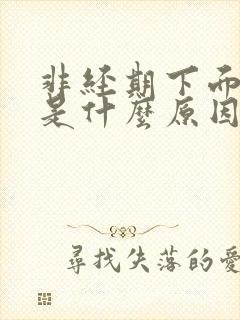 非经期下而
是什麼原因
尋找失落的愛